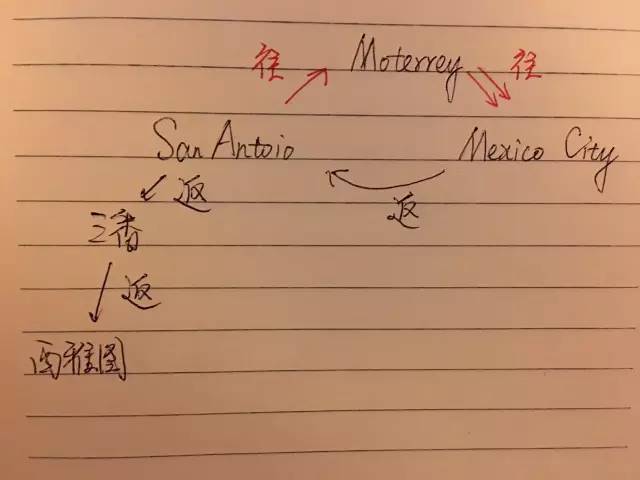 往 Moterrey 往
San Antoio Mexico City
返 返
三番
返
西雅图